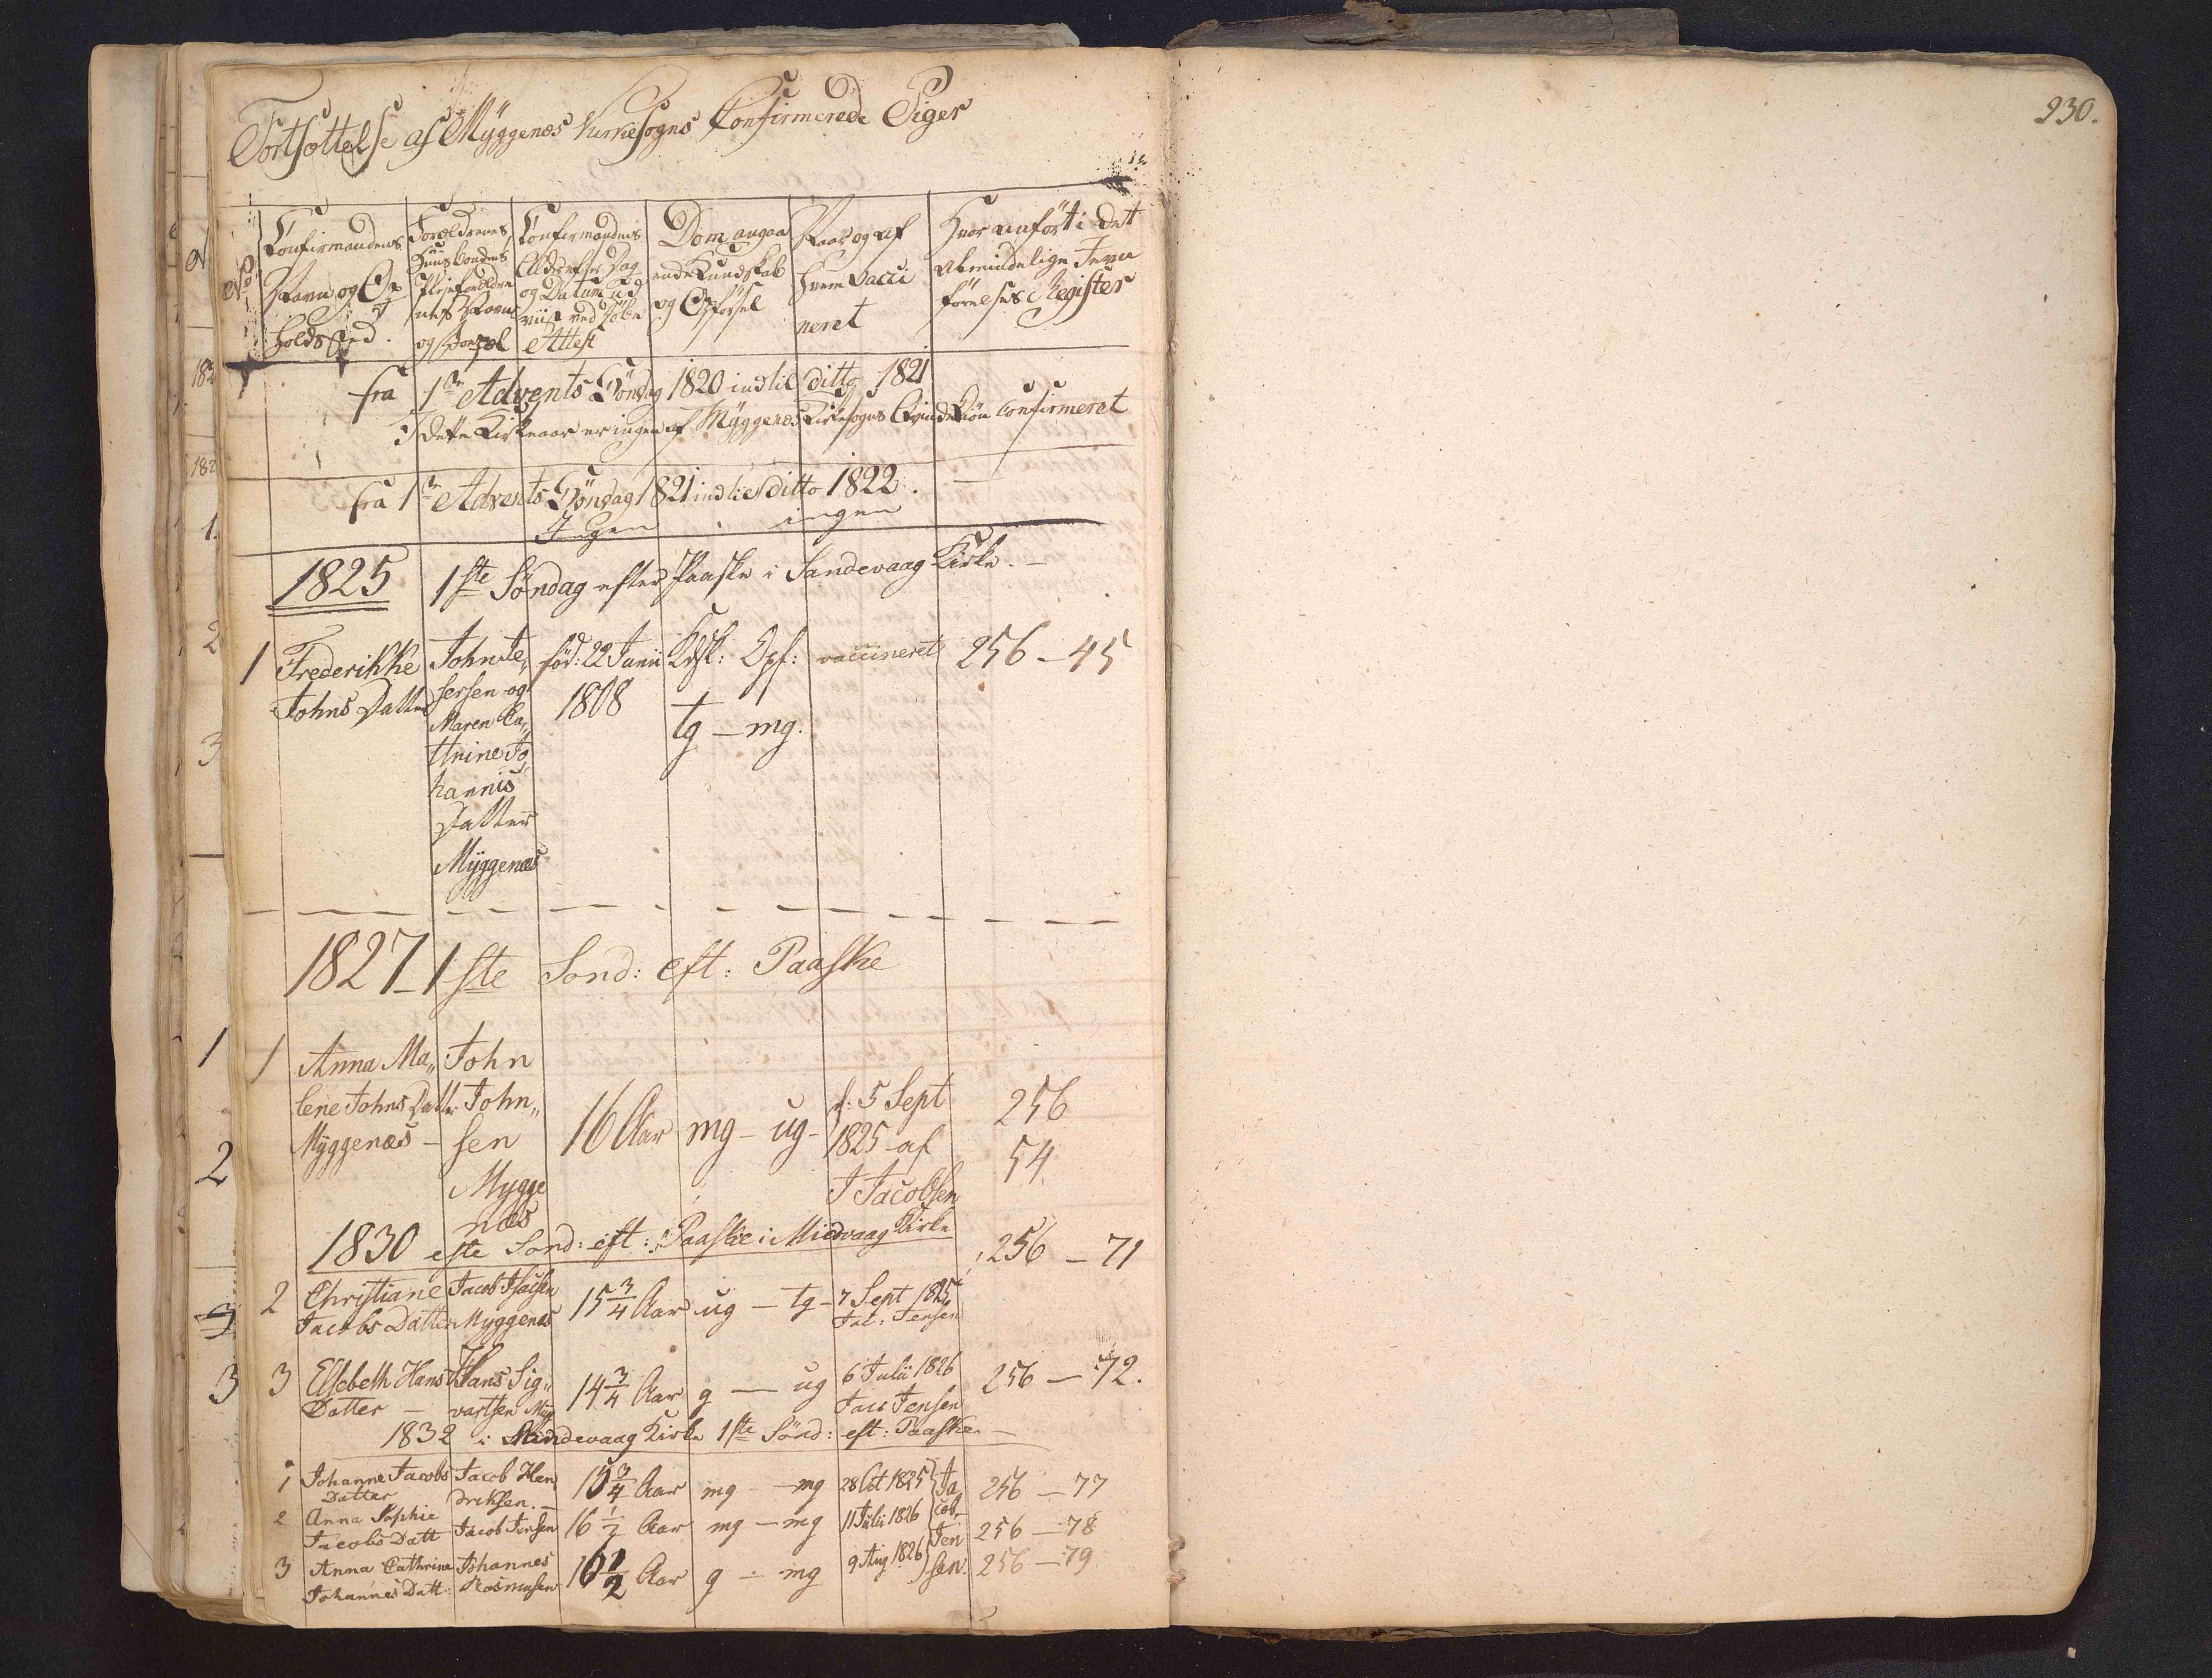 Fortsættelse af Myggenæs Kirkesogns Confirmerede Piger
No
Confirmandens Navn og Opholdssted.
Forældrenes Huusbondes Pleieforældrenes Navne og Bopæl
Confirmandens Alder efter Dag og Datum ud viist ved Døbe Attest
Dom angaaende Kundskab og Opførsel
Naar og af hvem vaccineret
Hvor anført i det almindelige Jevnførelses Register
fra 1ste Advents Søndag 1820 indtil ditto 1821
I dette Kirkeaar er ingen af Myggenæs Kirkesogns Qvindekiøn confirmeret
fra 1ste Advents Søndag 1821 indtil ditto 1822.
Ingen ingen
1825 1ste Søndag efter Paaske i Sandevaag Kirke. –
1 Frederikke John Je„ fød: 22 Junii Kdsk: Opf: vaccineret 256 – 45
Johns Datter sersen og 1808 tg – mg.
Maren Ca„
thrine Jo„
hannis
Datter
Myggenæs
1827 – 1ste Sond: eft: Paaske
1 Anna Ma„ John
lene Johns Datter John„ 16 Aar mg – ug – d: 5 Sept 256
Myggenæs – sen 1825 af 54
Mygge J Jacobsen
næs
1830 Sond: eft: Paaske i Midvaag Kirke
256 – 71
2 Christiane Jacob Isacsen 15 3/4 Aar ug – tg – 7 Sept 1825
Jacobs Datter Myggenæs Jac: Jensen
3 Elsebeth Hans Hans Sig„ 14 3/4 Aar g – ug 6 Julii 1826 256 – 72.
Datter – vartsen Myg Jac Jensen
1832 i Sandevaag Kirke 1ste Sönd: eft: Paaske –
1 Johanne Jacobs Jacob Hen 15 3/4 Aar mg – mg 28 Oct 1825 Ja 256 – 77
Datter driksen. –
2 Anna Sophie Jacob Jensen 16 1/2 Aar mg – mg 11 Julii 1826 cob 256 – 78
Jacobs Datt Jen
3 Anna Cathrine Johannes 16 1/2 Aar g – mg 9 Aug 1826 sen. 256 – 79
Johannes Datt: Rasmusen
230.